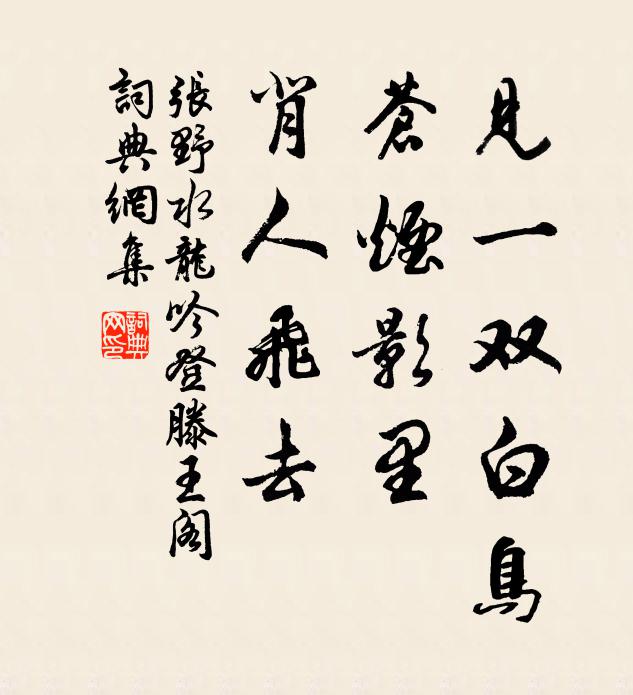 見一双白鳥
蒼煙影里
背人飛去
張野水龍吟登滕王阁
詞典網集
詞典网印